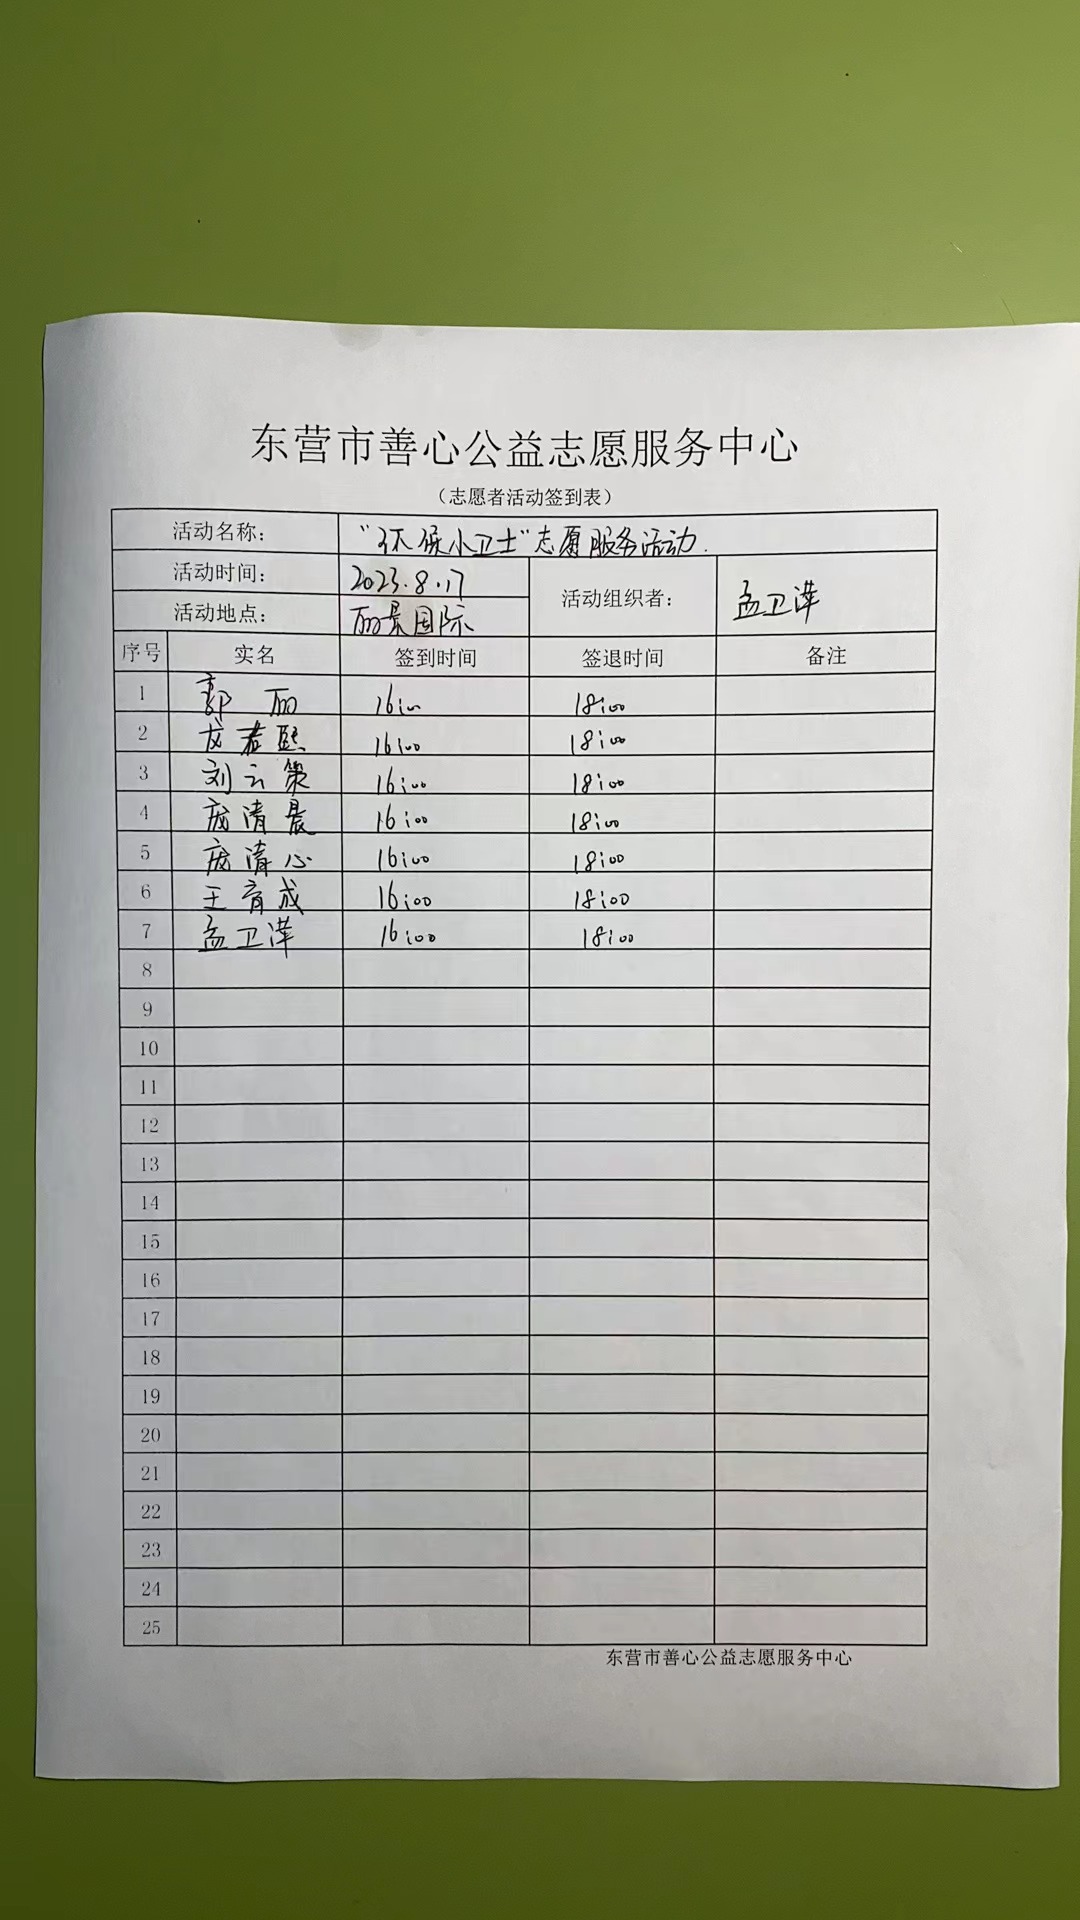 东营市善心公益志愿服务中心
（志愿者活动签到表）
活动名称： “环保小卫士”志愿服务活动.
活动时间： 2023.8.17 活动组织者： 孟卫萍
活动地点： 丽景国际
序号 实名 签到时间 签退时间 备注
1 郭丽 16:00 18:00
2 若熙 16:00 18:00
3 刘云策 16:00 18:00
4 庞清晨 16:00 18:00
5 庞清心 16:00 18:00
6 王育成 16:00 18:00
7 孟卫萍 16:00 18:00
8
9
10
11
12
13
14
15
16
17
18
19
20
21
22
23
24
25
东营市善心公益志愿服务中心